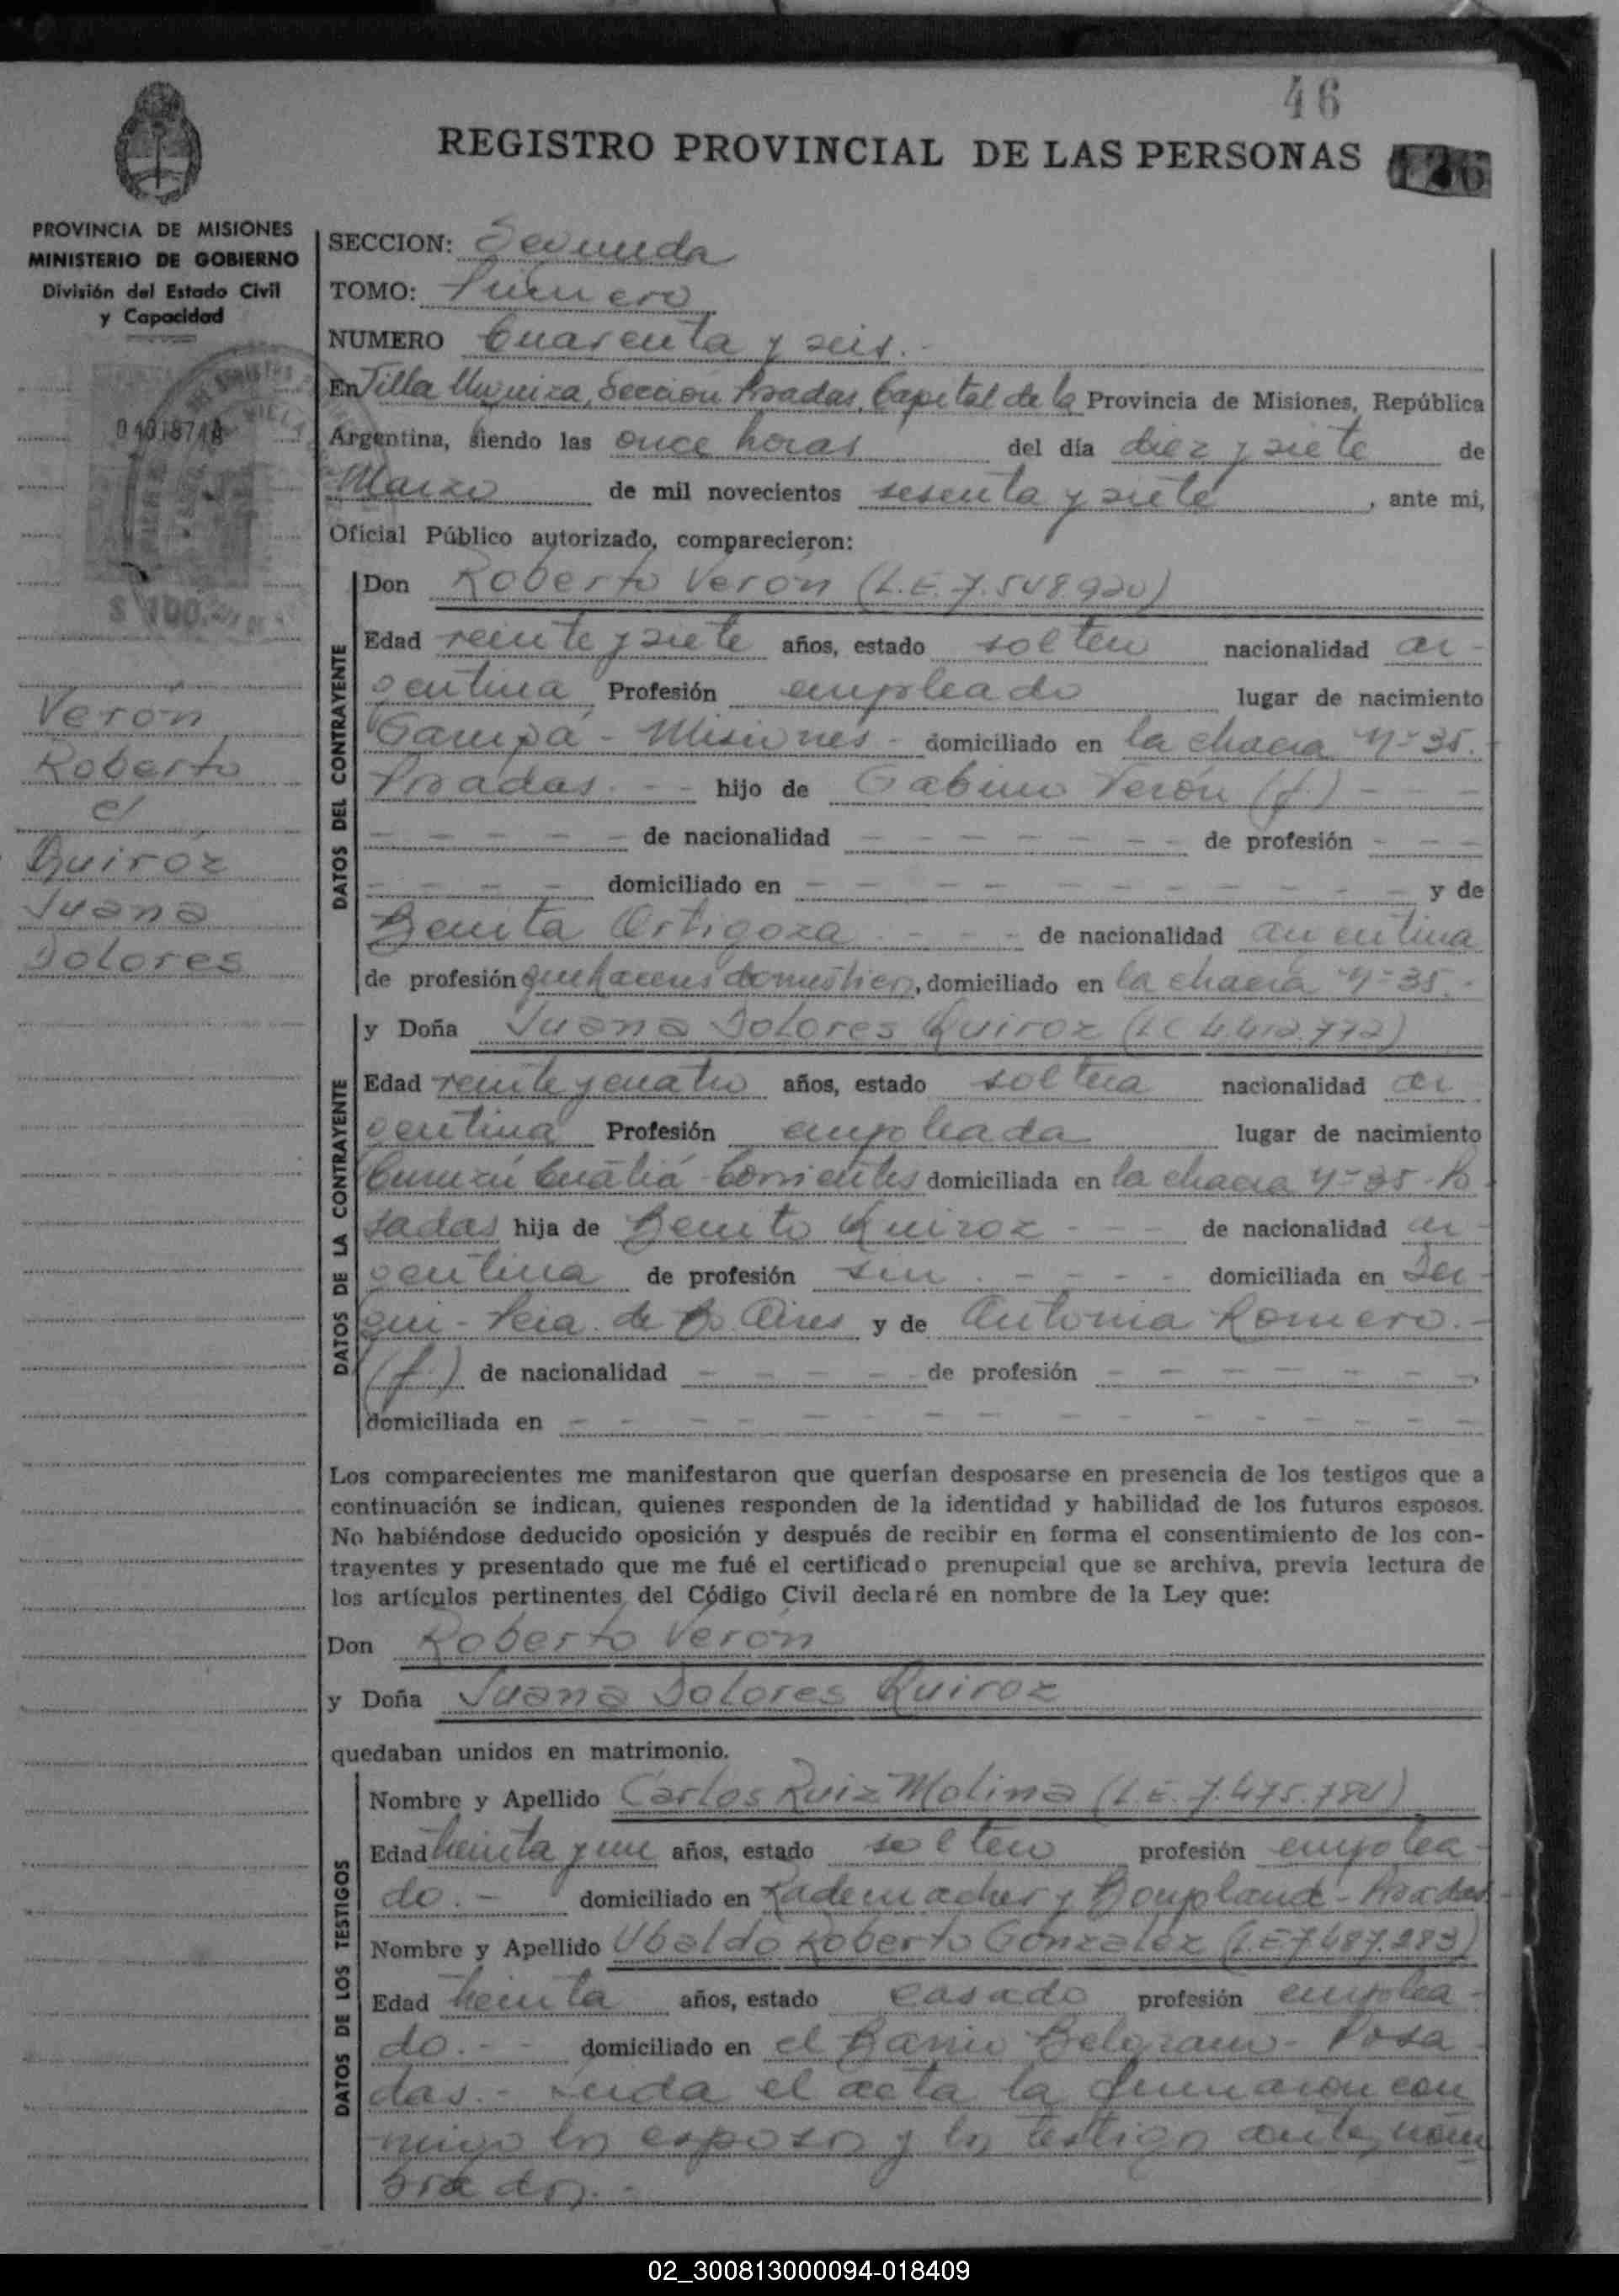 46
REGISTRO PROVINCIAL DE LAS PERSONAS
PROVINCIA DE MISIONES
MINISTERIO DE GOBIERNO
División del Estado Civil
y Capacidad
Verón
Roberto
c/
Quiróz
Juana
Dolores
SECCION: Segunda
TOMO: Primero
NUMERO Cuarenta y seis.-
En Villa Urquiza, Sección Posadas, Capital de la Provincia de Misiones, República
Argentina, siendo las once horas del día diez y siete de
Marzo de mil novecientos sesenta y siete, ante mi,
Oficial Público autorizado, comparecieron:
DATOS DEL CONTRAYENTE
Don Roberto Verón (L.E. 7.548.920)
Edad veinte y siete años, estado soltero nacionalidad ar-
gentina Profesión empleado lugar de nacimiento
Garupá - Misiones - domiciliado en la chacra nº 35.
Posadas. - - hijo de Gabino Verón (f.) - - -
- - - - - - de nacionalidad - - - - - - - de profesión - - -
- - - - domiciliado en - - - - - - - - - - - y de
Benita Ortigoza - - - - de nacionalidad argentina
de profesión quehaceres domésticos, domiciliado en la chacra nº 35.-
DATOS DE LA CONTRAYENTE
y Doña Juana Dolores Quiroz (LC 4.412.772)
Edad veinte y cuatro años, estado soltera nacionalidad ar
gentina Profesión empleada lugar de nacimiento
Curuzú Cuatiá - Corrientes domiciliada en la chacra nº 35 - Po
sadas hija de Benito Quiroz - - - de nacionalidad ar-
gentina de profesión sin. - - - - domiciliada en
- Pcia. de Bs. Aires y de Antonia Romero.-
(f.) de nacionalidad - - - - - de profesión - - - - - -,
domiciliada en - - - - - - - - - - - - - - -
Los comparecientes me manifestaron que querían desposarse en presencia de los testigos que a
continuación se indican, quienes responden de la identidad y habilidad de los futuros esposos.
No habiéndose deducido oposición y después de recibir en forma el consentimiento de los con-
trayentes y presentado que me fué el certificado prenupcial que se archiva, previa lectura de
los artículos pertinentes del Código Civil declaré en nombre de la Ley que:
Don Roberto Verón
y Doña Juana Dolores Quiroz
quedaban unidos en matrimonio.
DATOS DE LOS TESTIGOS
Nombre y Apellido Carlos Ruiz Molina (L.E. 7.475.784)
Edad treinta y un años, estado soltero profesión emplea-
do.- domiciliado en Rademacher y Bompland - Posadas
Nombre y Apellido Ubaldo Roberto González (L.E 7.487.283)
Edad treinta años, estado casado profesión emplea-
do.- - domiciliado en el Barrio Belgrano - Posa
das.- Leída el acta la firmaron con
migo los esposos y los testigos ante nom
brados.-
02_300813000094-018409